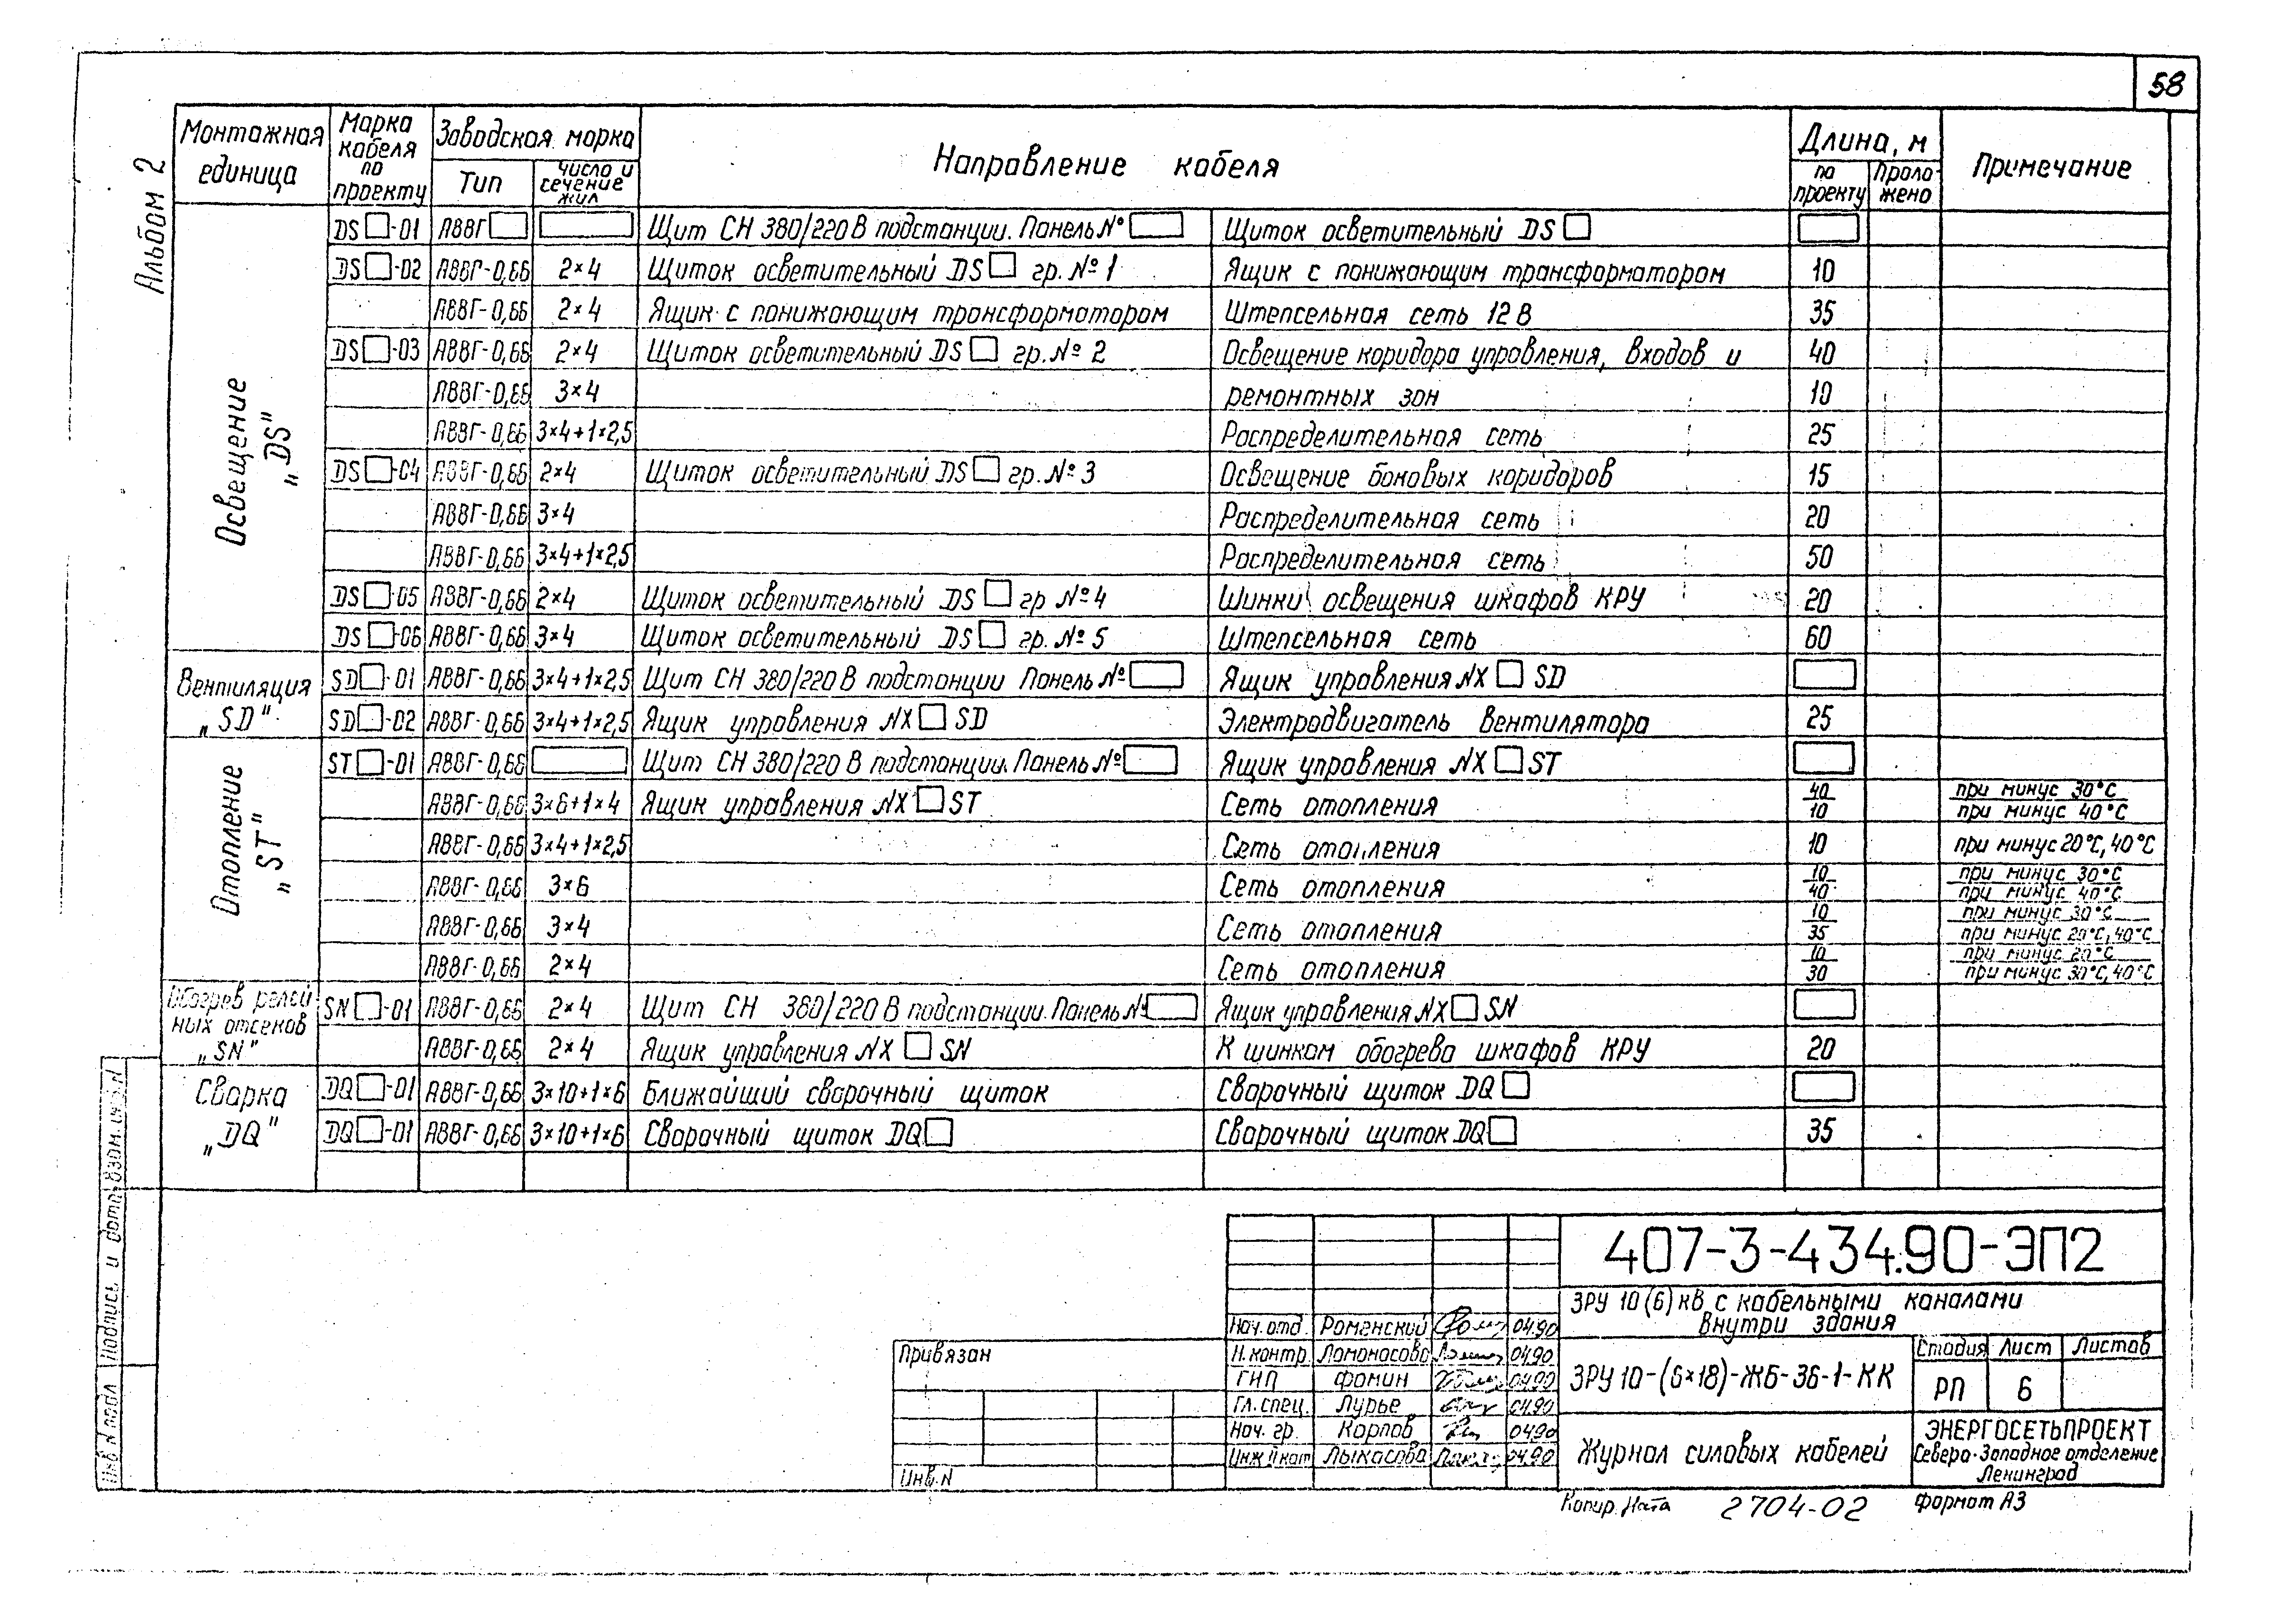 58
Альбом 2
Монтажная единица | Марка кабеля по проекту | Заводская марка | Направление кабеля | Длина, м | Примечание
Тип | Число и сечение жил | по проекту | Проложено
Освещение „DS"
DS□-01 | АВВГ□ | □ | Щит СН 380/220 В подстанции. Панель №□ | Щиток осветительный DS□ | □
DS□-02 | АВВГ-0,66 | 2×4 | Щиток осветительный DS□ гр. №1 | Ящик с понижающим трансформатором | 10
АВВГ-0,66 | 2×4 | Ящик с понижающим трансформатором | Штепсельная сеть 12 В | 35
DS□-03 | АВВГ-0,66 | 2×4 | Щиток осветительный DS□ гр. №2 | Освещение коридора управления, входов и | 40
АВВГ-0,66 | 3×4 | ремонтных зон | 10
АВВГ-0,66 | 3×4+1×2,5 | Распределительная сеть | 25
DS□-04 | АВВГ-0,66 | 2×4 | Щиток осветительный DS□ гр. №3 | Освещение боковых коридоров | 15
АВВГ-0,66 | 3×4 | Распределительная сеть | 20
АВВГ-0,66 | 3×4+1×2,5 | Распределительная сеть | 50
DS□-05 | АВВГ-0,66 | 2×4 | Щиток осветительный DS□ гр №4 | Шинки освещения шкафов КРУ | 20
DS□-06 | АВВГ-0,66 | 3×4 | Щиток осветительный DS□ гр. №5 | Штепсельная сеть | 60
Вентиляция „SD"
SD□-01 | АВВГ-0,66 | 3×4+1×2,5 | Щит СН 380/220 В подстанции Панель №□ | Ящик управления NX□SD | □
SD□-02 | АВВГ-0,66 | 3×4+1×2,5 | Ящик управления NX□SD | Электродвигатель вентилятора | 25
Отопление „ST"
ST□-01 | АВВГ-0,66 | □ | Щит СН 380/220 В подстанции. Панель №□ | Ящик управления NX□ST | □
АВВГ-0,66 | 3×6+1×4 | Ящик управления NX□ST | Сеть отопления | 40/10 | при минус 30°С / при минус 40°С
АВВГ-0,66 | 3×4+1×2,5 | Сеть отопления | 10 | при минус 20°С, 40°С
АВВГ-0,66 | 3×6 | Сеть отопления | 10/40 | при минус 30°С / при минус 40°С
АВВГ-0,66 | 3×4 | Сеть отопления | 10/35 | при минус 30°С / при минус 20°С, 40°С
АВВГ-0,66 | 2×4 | Сеть отопления | 10/30 | при минус 20°С / при минус 30°С, 40°С
Обогрев релейных отсеков „SN"
SN□-01 | АВВГ-0,66 | 2×4 | Щит СН 380/220 В подстанции. Панель №□ | Ящик управления NX□SN | □
АВВГ-0,66 | 2×4 | Ящик управления NX□SN | К шинкам обогрева шкафов КРУ | 20
Сварка „DQ"
DQ□-01 | АВВГ-0,66 | 3×10+1×6 | Ближайший сварочный щиток | Сварочный щиток DQ□ | □
DQ□-01 | АВВГ-0,66 | 3×10+1×6 | Сварочный щиток DQ□ | Сварочный щиток DQ□ | 35
Инв. № подл | Подпись и дата | Взам. инв. №
Привязан
Инв. N
407-3-434.90-ЭП2
ЗРУ 10(6) кВ с кабельными каналами
внутри здания
Нач. отд. | Роменский | 04.90
Н. контр | Ломоносова | 04.90
ГИП | Фомин | 04.90
Гл. спец. | Лурье | 04.90
Нач. гр. | Карпов | 04.90
Инж II кат | Лыкасова | 04.90
ЗРУ 10-(6×18)-ЖБ-36-1-КК
Стадия | Лист | Листов
РП | 6
Журнал силовых кабелей
ЭНЕРГОСЕТЬПРОЕКТ
Северо-Западное отделение
Ленинград
Копир. Ната 2704-02 Формат А3